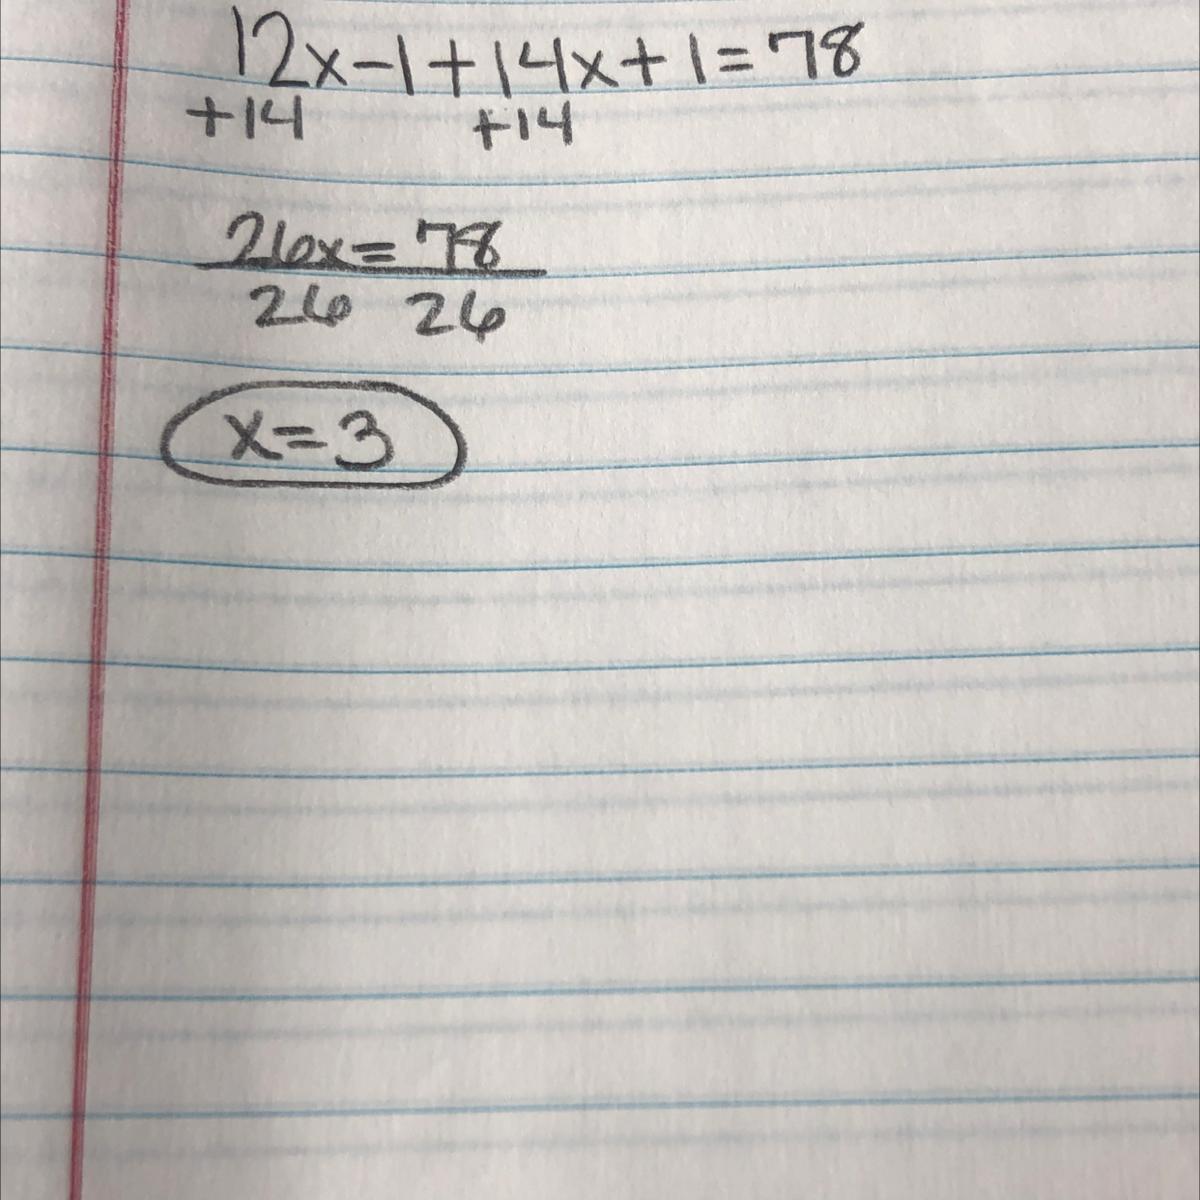 12x-1+14x+1=78
+14 +14
26x=78
26 26
x=3